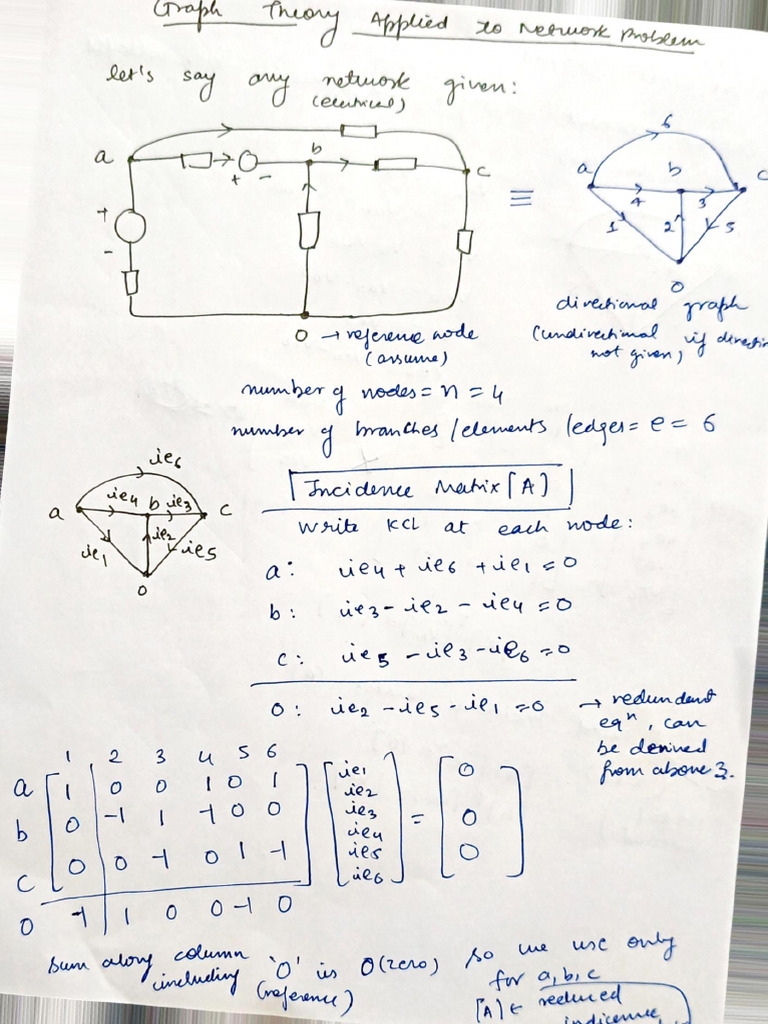 Graph Theory Applied to Network Problem
let's say any network given:
(electrical)
a
b
c
+ -
+
-
0 → reference node
(assume)
≡
6
a b c
4 3
1 2 5
0
directional graph
(undirectional if direction
not given)
number of nodes = n = 4
number of branches / elements / edges = e = 6
ie6
a ie4 b ie3 c
ie1 ie2 ie5
0
Incidence Matrix [A]
Write KCL at each node:
a: ie4 + ie6 + ie1 = 0
b: ie3 - ie2 - ie4 = 0
c: ie5 - ie3 - ie6 = 0
0: ie2 - ie5 - ie1 = 0 → redundent
eqn, can
be derived
from above 3.
1 2 3 4 5 6
a [ 1 0 0 1 0 1 ] [ ie1 ie2 ie3 ie4 ie5 ie6 ] = [ 0 0 0 ]
b 0 -1 1 -1 0 0
c 0 0 -1 0 1 -1
0 -1 1 0 0 -1 0
Sum along column
including '0' is 0(zero)
(reference)
so we use only
for a, b, c
[A] ← reduced
indicence